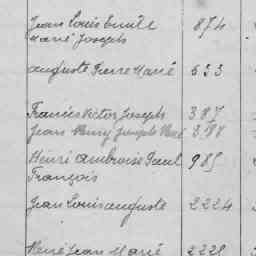 Jean Louis Emile 874
Marie Joseph
Auguste Pierre Marie 633
Francis Victor Joseph 387
Jean Remy Joseph 388
Henri Ambroise Paul 985
François
Jean Louis Auguste 2224
René Jean Marie 2229